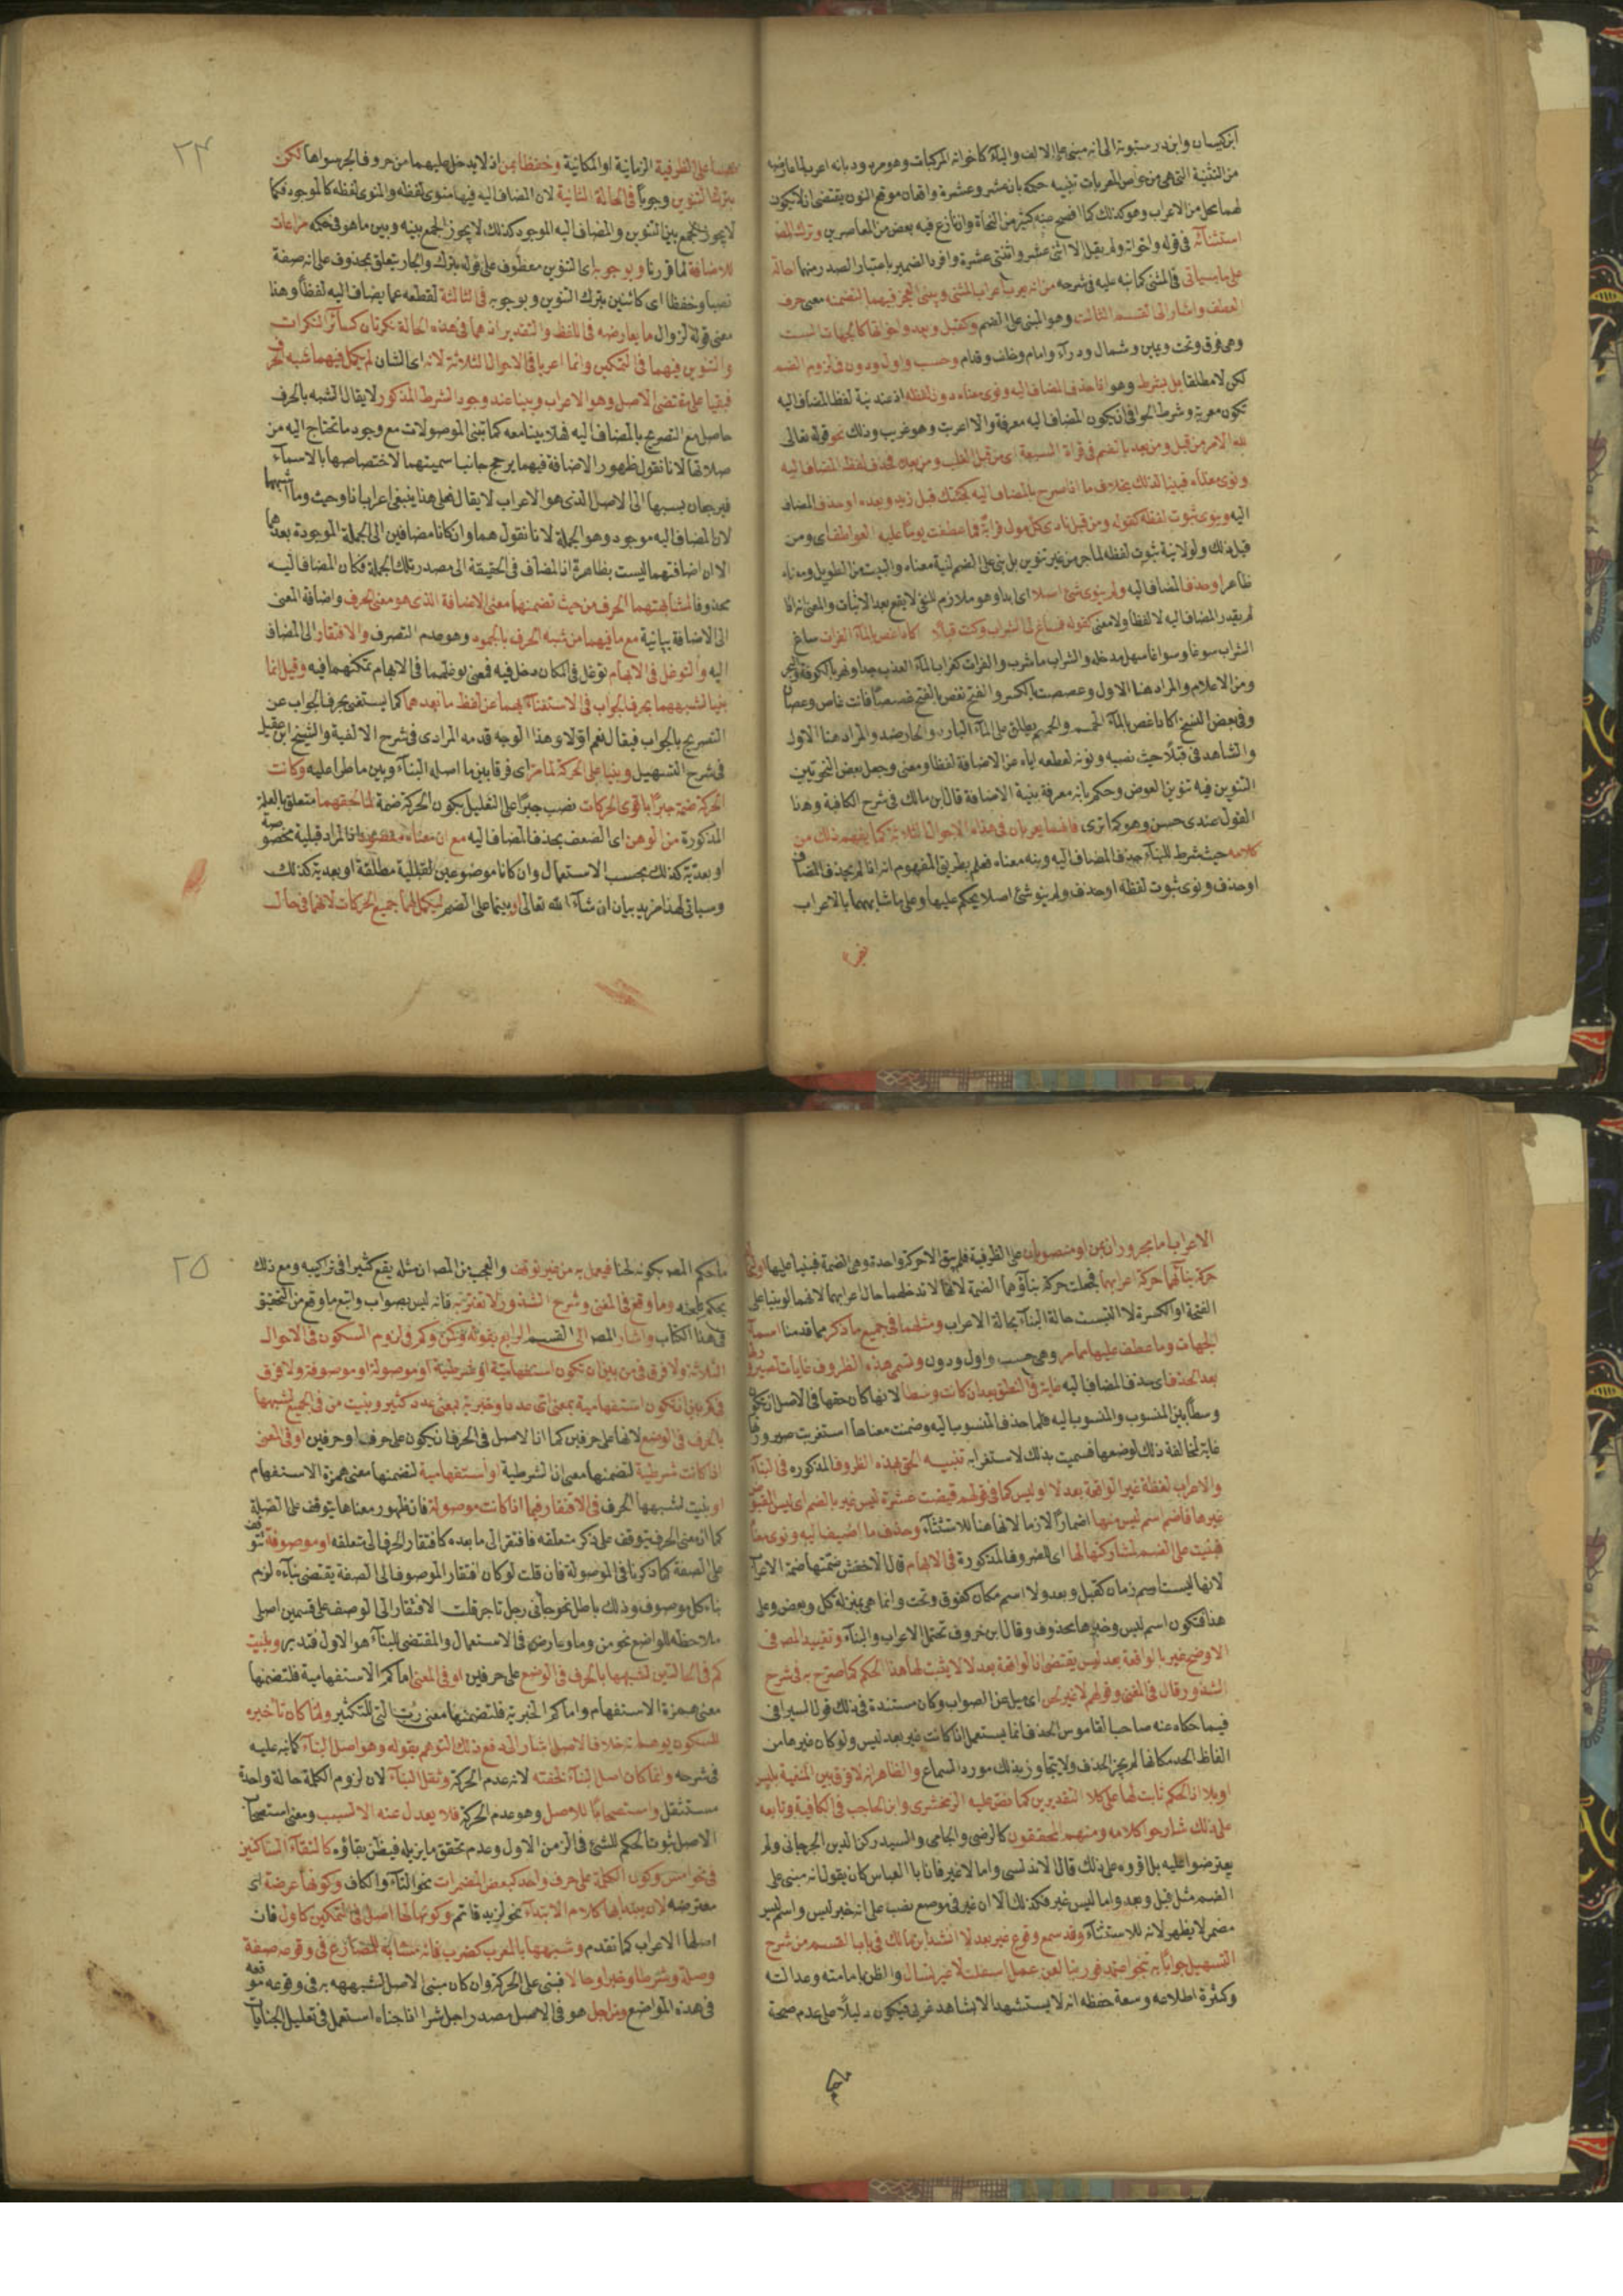 ابن كيسان وابن درستويه الى انه مبنى على الالف والياء كاخواته المركبات وهو مردود بانه اعرب لما عارضه
من التثنية التى هى من خواص المعربات تنبيه حكمه بان عشر وعشرة واقعان موقع النون يقتضى ان لا يكون
لهما محل من الاعراب وهو كذلك كما افصح به كثير من النحاة وان نازع فيه بعض من المعاصرين وترك المص
استثنائه فى قوله واخواته ولم يقل الا اثنى عشر واثنتى عشرة وافرد الضمير باعتبار الصدر منهما احالة
على ما سياتى فى المثنى كما نبه عليه فى شرحه من انه يعرب اعراب المثنى ويبنى العجز فيهما لتضمنه معنى حرف
العطف واشار الى القسم الثالث وهو المبنى على الضم وكقبل وبعد واخواتها كالجهات الست
وهى فوق وتحت ويمين وشمال ووراء وامام وخلف وقدام وحسب واول ودون فى لزوم الضم
لكن لا مطلقا بل بشرط وهو اذا حذف المضاف اليه ونوى معناه دون لفظه اذ عند نية لفظ المضاف اليه
تكون معربة وشرط الحوافى ان يكون المضاف اليه معرفة والا اعربت وهو غريب وذلك نحو قوله تعالى
لله الامر من قبل ومن بعد بالضم فى قراءة السبعة اى من قبل الغلب ومن بعده فحذف لفظ المضاف اليه
ونوى معناه فبنيا لذلك بخلاف ما اذا صرح بالمضاف اليه كجئتك قبل زيد وبعده او حذف المضاف
اليه ونوى ثبوت لفظه كقوله ومن قبل نادى كل مولى قرابة فما عطفت يوما عليه العواطف اى ومن
قبل ذلك ولولا نية ثبوت لفظه لما جر من غير تنوين بل بنى على الضم لنية معناه والبيت من الطويل ومعناه
ظاهر او حذف المضاف اليه ولم ينوى شئ اصلا اى ابدا وهو ملازم للنفى لا يقع بعد الاثبات والمعنى انه اذا
لم يقدر المضاف اليه لا لفظا ولا معنى كقوله فساغ لى الشراب وكنت قبلا اكاد اغص بالماء الفرات ساغ
الشراب سوغا وسواغا سهل مدخله والشراب ما شرب والفرات كغراب الماء العذب جدا ونهر بالكوفة
ومن الاعلام والمراد هنا الاول وغصصت بالكسر والفتح تغص بالفتح غصصا فانت غاص وغصان
وفى بعض النسخ اكاد اغص بالماء الحميم والحميم يطلق على الماء البارد والحار ضد والمراد هنا الاول
والشاهد فى قبلا حيث نصبه ونونه لقطعه اياه عن الاضافة لفظا ومعنى وجعل بعض النحويين
التنوين فيه تنوين العوض وحكم بانه معرفة بنية الاضافة قال ابن مالك فى شرح الكافية وهذا
القول عندى حسن وهو كما ترى فانهما يعربان فى هذه الاحوال الثلاثة كما يفهم ذلك من
كلامه حيث شرط للبناء حذف المضاف اليه ونية معناه فعلم بطريق المفهوم انه اذا لم يحذف المضاف
او حذف ونوى ثبوت لفظه او حذف ولم ينو شئ اصلا يحكم عليها وعلى ما شابهها بالاعراب
٢٤
نصبا على الظرفية الزمانية او المكانية وخفضا بمن اذ لا يدخل عليهما من حروف الجر سواها لكن
بترك التنوين وجوبا فى الحالة الثانية لان المضاف اليه فيها منوى لفظه والمنوى لفظه كالموجود فكما
لا يجوز الجمع بين التنوين والمضاف اليه الموجود كذلك لا يجوز الجمع بينه وبين ما هو فى حكمه مراعات
للاضافة لما قررنا وبوجوبه اى التنوين معطوف على قوله بترك والجار يتعلق بمحذوف على انه صفة
نصبا وخفضا اى كائنين بترك التنوين وبوجوبه فى الثالثة لقطعه عما يضاف اليه لفظا وهذا
معنى قوله لزوال ما يعارضه فى اللفظ والتقدير اذ هما فى هذه الحالة نكرتان كسائر النكرات
والتنوين فيهما فى التمكين وانما اعربا فى الاحوال الثلاثة لانه اى الشان لم يكمل فيهما شبه الحرف
فبقيا على مقتضى الاصل وهو الاعراب وبينا عند وجود الشرط المذكور لا يقال الشبه بالحرف
حاصل مع التصريح بالمضاف اليه فهلا بينا معه كما تبنى الموصولات مع وجود ما تحتاج اليه من
صلاتها لانا نقول ظهور الاضافة فيهما يرجح جانب اسميتهما لاختصاصها بالاسماء
فيرجعان بسببها الى الاصل الذى هو الاعراب لا يقال فعلى هذا ينبغى اعراب اذا وحيث وما اشبهها
لان المضاف اليه موجود وهو الجملة لانا نقول هما وان كانا مضافين الى الجملة الموجودة بعدهما
الا ان اضافتهما ليست بظاهرة اذ المضاف فى الحقيقة الى مصدر تلك الجملة فكان المضاف اليه
محذوفا لمشابهتهما الحرف من حيث تضمنهما معنى الاضافة الذى هو معنى الحرف واضافة المعنى
الى الاضافة بيانية مع ما فيهما من شبه الحرف بالجمود وهو عدم التصرف والافتقار الى المضاف
اليه والتوغل فى الابهام توغل فى المكان دخل فيه فمعنى توغلهما فى الابهام تمكنهما فيه وقيل انما
بنيا لشبههما بحرف الجواب فى الاستغناء بهما عن لفظ ما بعدهما كما يستغنى بحرف الجواب عن
التصريح بالجواب فيقال نعم اولا وهذا الوجه قدمه المرادى فى شرح الالفية والشيخ ابن عقيل
فى شرح التسهيل وبنيا على الحركة لما مر اى فرقا بين ما اصله البناء وبين ما طرا عليه وكانت
الحركة ضمة جبرا باقوى الحركات نصب جبرا على التعليل بكون الحركة ضمة لما لحقهما متعلق بالعلة
المذكورة من الوهن اى الضعف بحذف المضاف اليه مع ان معناه مقصود اذ المراد قبلية مخصوصة
او بعدية كذلك بحسب الاستعمال وان كانا موضوعين لقبلية مطلقة او بعدية كذلك
وسياتى لهذا مزيد بيان ان شاء الله تعالى او بينما على الضم ليكمل لهما جميع الحركات لانهما فى حال
الاعراب اما مجروران بمن او منصوبان على الظرفية فلم يبق الا حركة واحدة وهى الضمة فبنيا عليها
حركة بنائهما حركة اعرابهما فجعلت حركة بنائهما الضمة لانها لا تدخلهما حال اعرابهما لانهما لو بنيا على
الفتحة او الكسرة لالتبست حالة البناء بحالة الاعراب ومثلهما فى جميع ما ذكر مما قدمنا اسماء
الجهات وما عطف عليها مما مر وهى حسب واول ودون وتسمى هذه الظروف غايات لصيرورتها
بعد الحذف اى حذف المضاف اليه غاية فى النطق بعد ان كانت وسطا لانها كان حقها فى الاصل ان تكون
وسطا بين المنسوب والمنسوب اليه فلما حذف المنسوب اليه وضمنت معناها استغربت صيرورتها
غاية لمخالفة ذلك لوضعها فسميت بذلك لاستغرابه تنبيه الحق بهذه الظروف المذكورة فى البناء
والاعراب لفظة غير الواقعة بعد لا او ليس كما فى قولهم قبضت عشرة ليس غير بالضم اى ليس المقبوض
غيرها فاضمر اسم ليس منها اضمارا لازما لانها هنا للاستثناء وحذف ما اضيف اليه ونوى معناه
فبنيت على الضم لمشاركتها لها اى الظروف المذكورة فى الابهام قال الاخفش ضمتها ضمة الاعراب
لانها ليست اسم زمان كقبل وبعد ولا اسم مكان كفوق وتحت وانما هى بمنزلة كل وبعض وعلى
هذا فتكون اسم ليس وخبرها محذوف وقال ابن خروف تحتمل الاعراب والبناء وتقييد المص فى
الاوضح غير بالواقعة بعد ليس يقتضى ان الواقعة بعد لا لا يثبت لها هذا الحكم كما صرح به فى شرح
الشذور وقال فى المغنى وقولهم لا غير لحن اى ميل عن الصواب وكان مستنده فى ذلك قول السيرافى
فيما حكاه عنه صاحب القاموس الحذف انما يستعمل اذا كانت غير بعد ليس ولو كان غيرها من
الفاظ الجحد مكانها لم يجز الحذف ولا يتجاوز بذلك مورد السماع والظاهر انه لا فرق بين المنفية بليس
او بلا اذ الحكم ثابت لها على كلا التقديرين كما نص عليه الزمخشرى وابن الحاجب فى الكافية وتابعه
على ذلك شارحوا كلامه ومنهم المحققون كالرضى والجامى والسيد ركن الدين الجرجانى ولم
يعترضوا عليه بل اقروه على ذلك قال الاندلسى واما لا غير فان ابا العباس كان يقول انه مبنى على
الضم مثل قبل وبعد واما ليس غير فكذلك الا ان غير فى موضع نصب على انه خبر ليس واسم ليس
مضمر لا يظهر لانه للاستثناء وقد سمع وقوع غير بعد لا انشد ابن مالك فى باب القسم من شرح
التسهيل جوابا به تنجو اعتمد فوربنا لعن عمل اسلفت لا غير تسال والظن بامامته وعدالته
وكثرة اطلاعه وسعة حفظه انه لا يستشهد الا بشاهد عربى فيكون دليلا على عدم صحة
ما حكم المص بكونه لحنا فيعمل به من غير توقف والعجب من المص ان مثله يقع كثيرا فى تراكيبه ومع ذلك
يحكم بلحنه وما وقع فى المغنى وشرح الشذور لا تغتر به فانه ليس بصواب واتبع ما وقع من التحقيق
فى هذا الكتاب واشار المص الى القسم الرابع بقوله وكمن وكم فى لزوم السكون فى الاحوال
الثلاثة ولا فرق فى من بين ان تكون استفهامية او شرطية او موصولة او موصوفة ولا فرق
فى كم بين ان تكون استفهامية بمعنى اى عدد او خبرية بمعنى عدد كثير وبنيت من فى الجميع لشبهها
بالحرف فى الوضع لانها على حرفين كما اذ الاصل فى الحرف ان يكون على حرف او حرفين او فى المعنى
اذا كانت شرطية لتضمنها معنى ان الشرطية او استفهامية لتضمنها معنى همزة الاستفهام
او بنيت لشبهها الحرف فى الافتقار فيما اذا كانت موصولة فان ظهور معناها يتوقف على الصلة
كما ان معنى الحرف يتوقف على ذكر متعلقه فافتقر الى ما بعده كافتقار الحرف الى متعلقه او موصوفة تتوقف
على الصفة كما ذكرنا فى الموصولة فان قلت لو كان افتقار الموصوف الى الصفة يقتضى بناءه لزم
بناء كل موصوف وذلك باطل نحو جاءنى رجل تاجر قلت الافتقار الى الوصف على قسمين اصلى
ملاحظه للواضع نحو من وما وعارض فى الاستعمال والمقتضى للبناء هو الاول فتدبر وبنيت
كم فى الحالتين لشبهها بالحرف فى الوضع على حرفين او فى المعنى اما كم الاستفهامية فلتضمنها
معنى همزة الاستفهام واما كم الخبرية فلتضمنها معنى رب التى للتكثير ولما كان تاخيره
للسكون يوهم انه خلاف الاصل اشار الى دفع ذلك التوهم بقوله وهو اصل البناء كما نبه عليه
فى شرحه وانما كان اصل البناء لخفته لانه عدم الحركة وثقل البناء لان لزوم الكلمة حالة واحدة
مستثقل واستصحابا للاصل وهو عدم الحركة فلا يعدل عنه الا لسبب ومعنى استصحاب
الاصل ثبوت الحكم للشئ فى الزمن الاول وعدم تحقق ما يزيله فيظن بقاؤه كالتقاء الساكنين
فى نحو امس وكون الكلمة على حرف واحد كبعض المضمرات نحو التاء والكاف وكونها عرضة اى
معترضة لان يبتدا بها كلام الابتداء نحو لزيد قائم وكونها لها اصل فى التمكين كاول فان
اصلها الاعراب كما تقدم وشبهها بالمعرب كضرب فانه مشابه للمضارع فى وقوعه صفة
وصلة وشرطا وخبرا وحالا فبنى على الحركة وان كان مبنى الاصل لشبهه به فى وقوعه موقعه
فى هذه المواضع ومن اجل هو فى الاصل مصدر اجل شرا اذا جناه استعمل فى تعليل الجنايات
٢٥